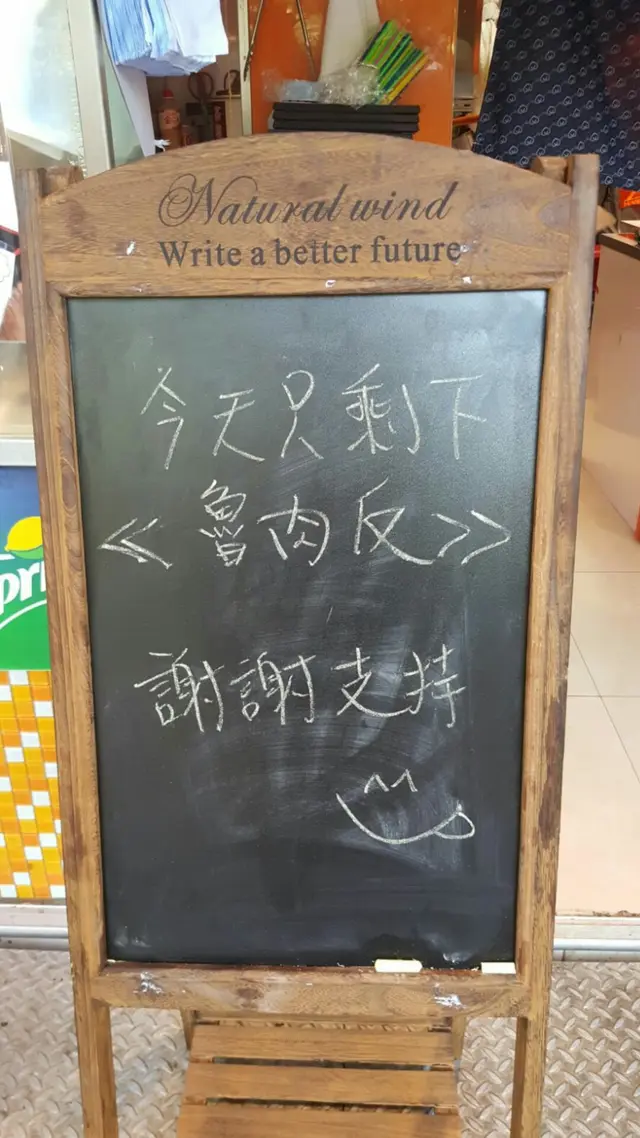 Natural wind
Write a better future
今天只剩下
《魯肉反》
謝謝支持
Spri